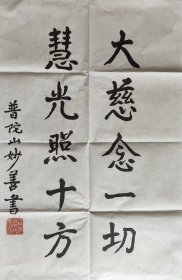 大慈念一切
慧光照十方
普陀山妙善書